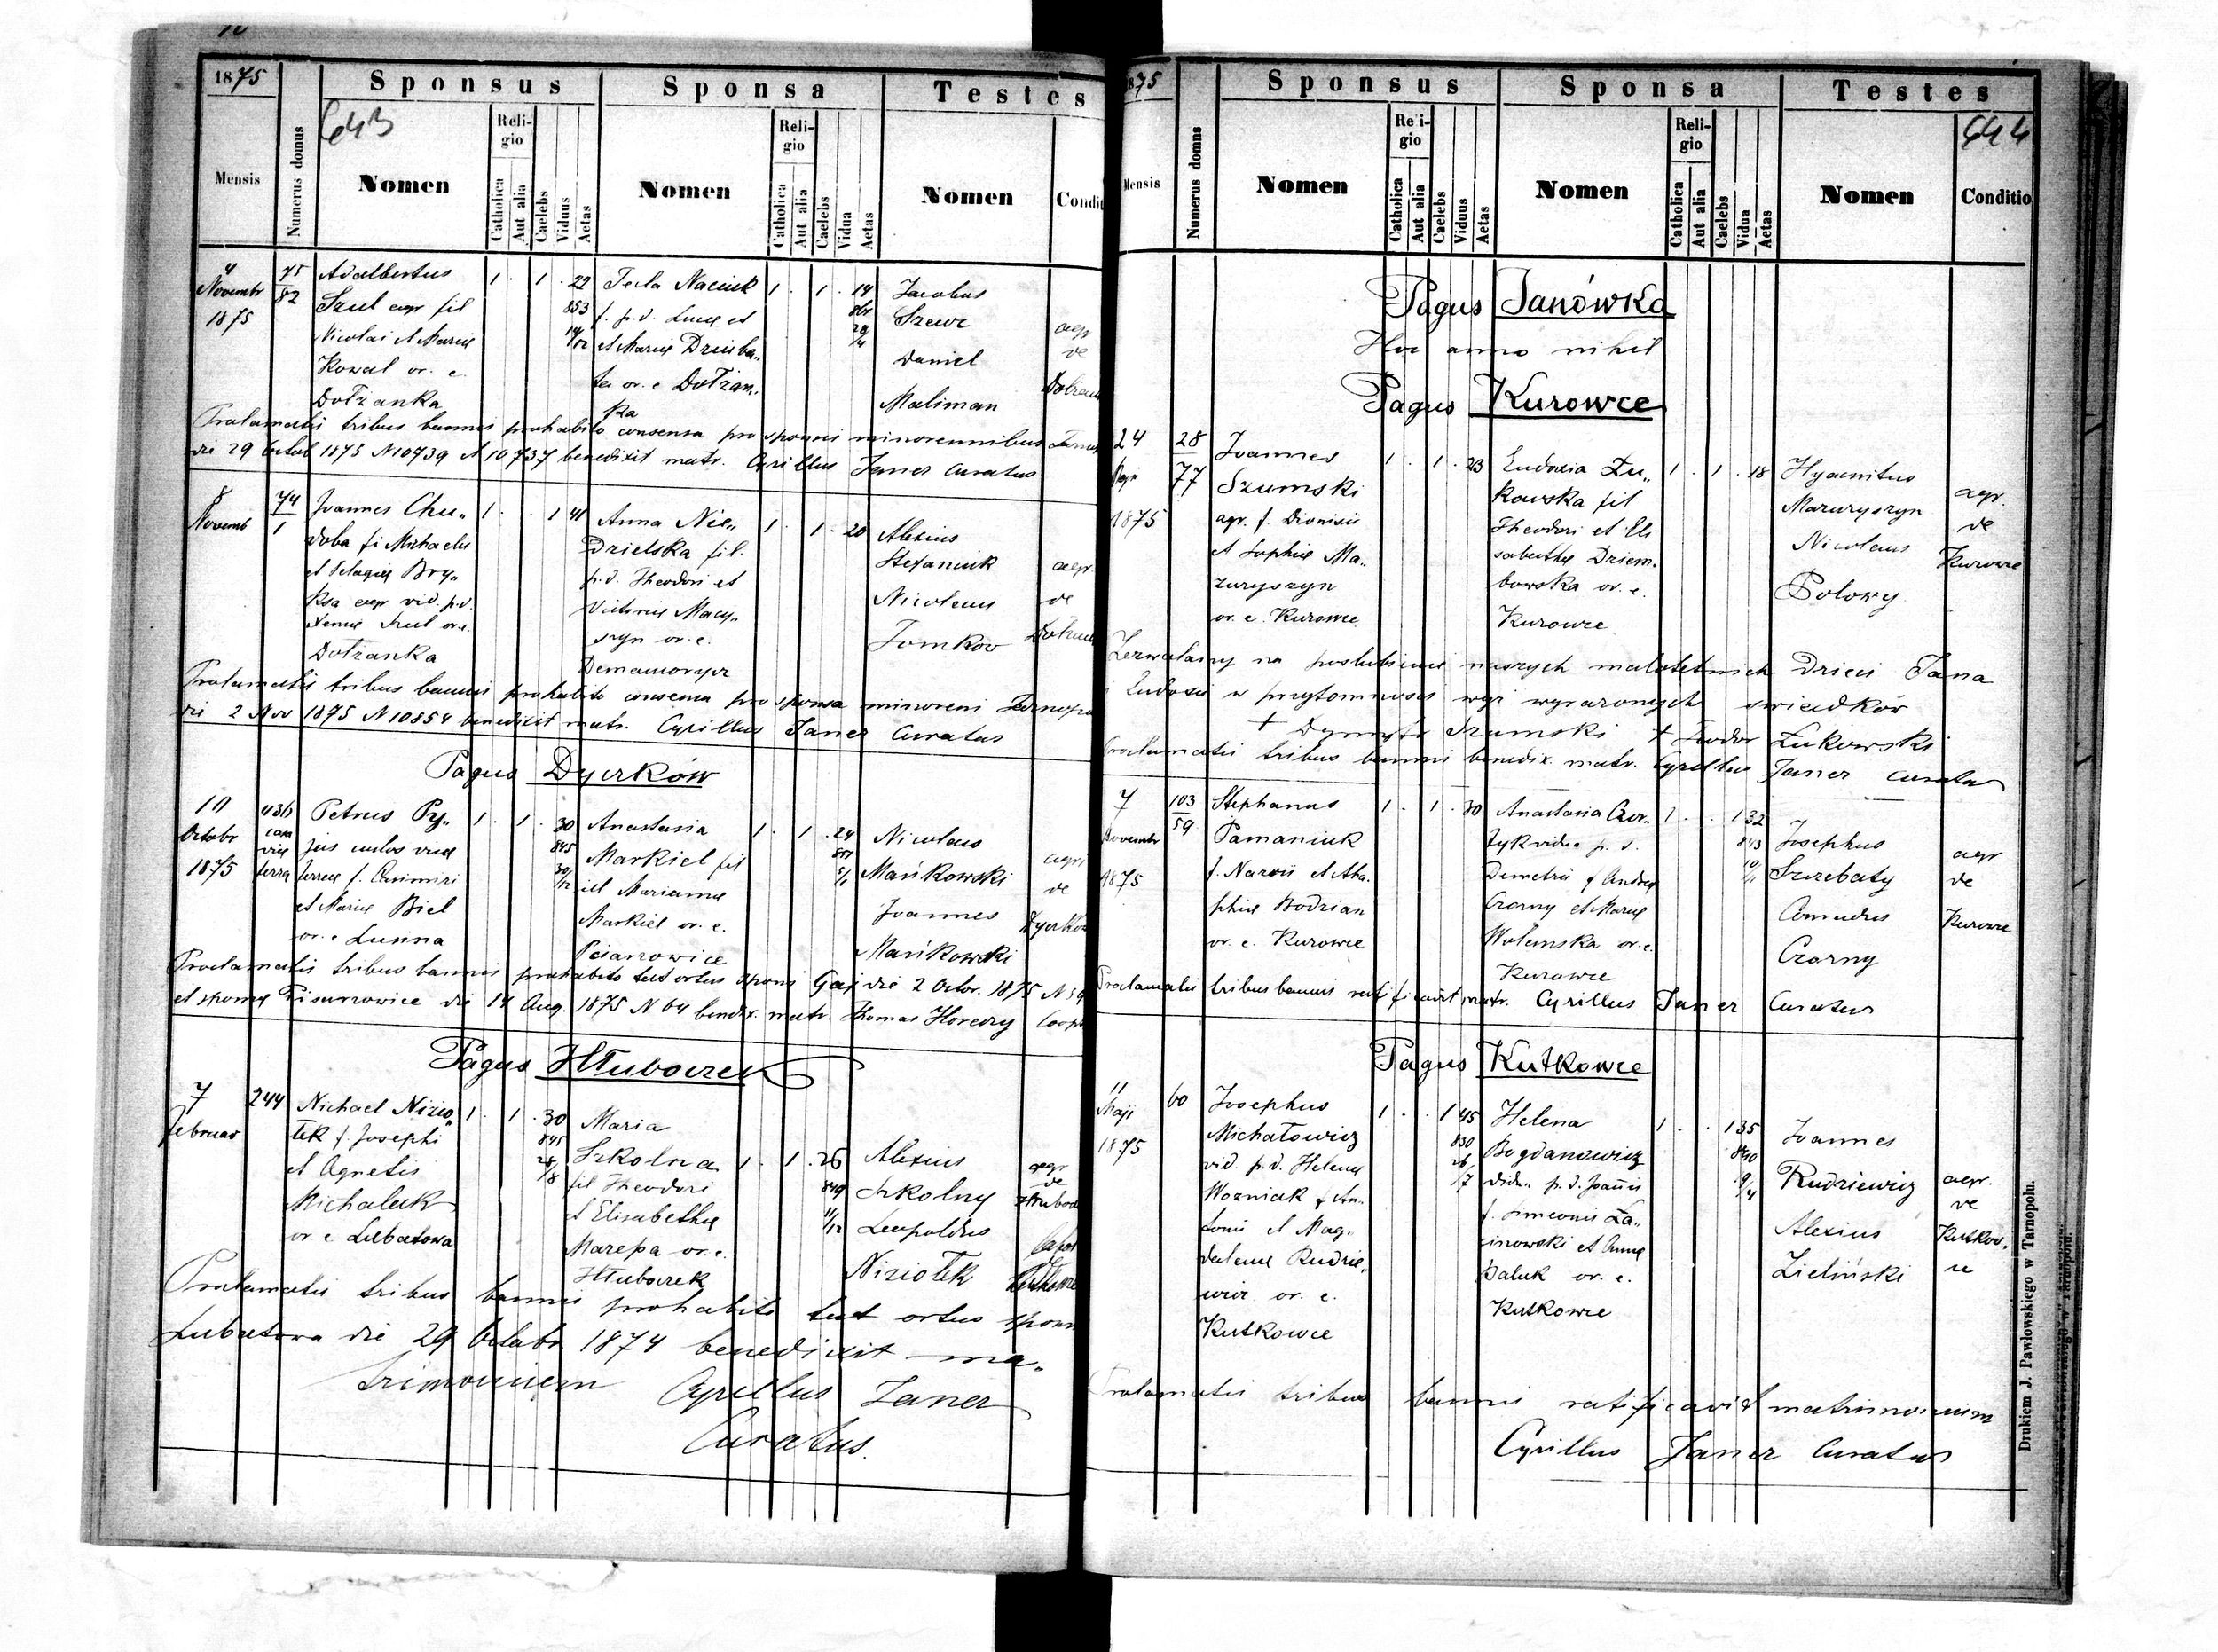 1875
Sponsus
Sponsa
Testes
643
Mensis
Numerus domus
Nomen
Religio
Catholica
Aut alia
Caelebs
Viduus
Aetas
Nomen
Religio
Catholica
Aut alia
Caelebs
Vidua
Aetas
Nomen
4
Novembr
1875
75
82
Adalbertus
Szul agr fil
Nicolai et Mariæ
Kowal or. e.
Dołżanka
1 . 1 . 22
853
14/12
Tecla Naciuk
f. p. d. Lucæ et
et Mariæ Dziuba„
or. e Dołżan„
ka
1 . 1 . 19
Jacobus
Szewc
Daniel
Maliman
agr
de
Proclamatis tribus bannis prohabito consensu pro sponsis minorennibus
die 29 Octob 1875 N 10739 et 10737 benedixit matr. Cyrillus Janer Curatus
8
Novemb
74
1
Joannes Chu„
doba fi Michaelis
et Pelagiæ Bry„
ksa agr vid. p.d.
Xeniæ Szul or.e.
Dołżanka
1 . . 1 41
Anna Nie„
dzielska fil.
p. d. Theodori et
Victoriæ Macy„
szyn or. e.
Demamorycz
1 . 1 . 20
Alexius
Stefaniuk
Nicolaus
Tomkow
agr.
de
Proclamatis tribus bannis prohabito consensu pro sponsa minoreni
die 2 Nov 1875 N 10854 benedixit matr. Cyrillus Janer Curatus
Pagus Dyczków
10
Octobr
1875
Petrus Py„
jus custos viæ
ferreæ f. Casimiri
et Mariæ Biel
or. e Lusina
1 . 1 . 30
845
30/12
Anastasia
Markiel fil
Mariannæ
Markiel or. e.
1 . 1 . 24
851
5/1
Nicolaus
Mańkowski
Joannes
Mańkowski
agri
de
Proclamatis tribus bannis prohabito test ortus sponsi Gaj die 2 Octbr. 1875
et sponsæ die 14 Aug. 1875 N 64 bendix. matr. Thomas Horeczy Coop
Pagus Hłuboczek
7
Februar
244
Michael Nizio„
łek f. Josephi
et Agnetis
Michaluk
or. e Lubatowa
1 . 1 . 30
845
28/8
Maria
Szkolna
fil Theodori
et Elisabethæ
Marepa or. e.
Hłuboczek
1 . 1 . 26
849
11/12
Alexius
Szkolny
Leopoldus
Niziołek
agr
de
Proclamatis tribus bannis prohabito test ortus sponsi
Lubatowa die 29 Octobr 1874 benedixit ma„
trimonium Cyrillus Janer
Curatus.
1875
Sponsus
Sponsa
Testes
644
Mensis
Numerus domus
Nomen
Religio
Catholica
Aut alia
Caelebs
Viduus
Aetas
Nomen
Religio
Catholica
Aut alia
Caelebs
Vidua
Aetas
Nomen
Conditio
Pagus Janówka
Hoc anno nihil
Pagus Kurowce
24
1875
28
77
Joannes
Szumski
agr. f. Dionisii
et Sophiæ Ma„
zuryszyn
or. e. Kurowce
1 . 1 . 23
Eudoxia Żu„
kowska fil
Theodori et Eli
sabethæ Dziem„
bowska or. e.
Kurowce
1 . 1 . 18
Hyacintus
Mazuryszyn
Nicolaus
Polowy
agr.
de
Kurowce
Zezwalamy na poslubienie naszych małoletnich Dzieci Jana
Eudoxii w przytomnosci wyż wyrażonych swiadków
+ Dymytr Szumski + Teodor Żukowski
Proclamatis tribus bannis benedix. matr. Cyrillus Janer curatus
7
Novembr
1875
103
59
Stephanus
Pamaniuk
or. e. Kurowce
1 . 1 . 30
Anastasia Czor„
tyk vidua p. d.
Demetrii f Andreæ
Czorny et Mariæ
Wolenska or. e.
Kurowce
1 . . 1 32
843
10/11
Josephus
Szczebaty
Czorny
agr
de
Kurowce
Proclamatis tribus bannis ratificavit matr. Cyrillus Janer Curatus
Pagus Kutkowce
11
Maji
1875
60
Josephus
Michałowicz
vid. p. d. Helenæ
Wozniak f An„
tonii et Mag„
dalenæ Rudzie„
wicz or. e.
Kutkowce
1 . . 1 45
830
26/7
Helena
Bogdanowicz
vidua p. d. Joannis
f. Simeonis Ła„
cinowski et Annæ
Paluk or. e.
Kutkowce
1 . . 1 35
840
9/4
Joannes
Rudziewicz
Alexius
Zieliński
agr.
de
Kutkow„
ce
Proclamatis tribus bannis ratificavit matrimonium
Cyrillus Janer Curatus
Drukiem J. Pawłowskiego w Tarnopolu.